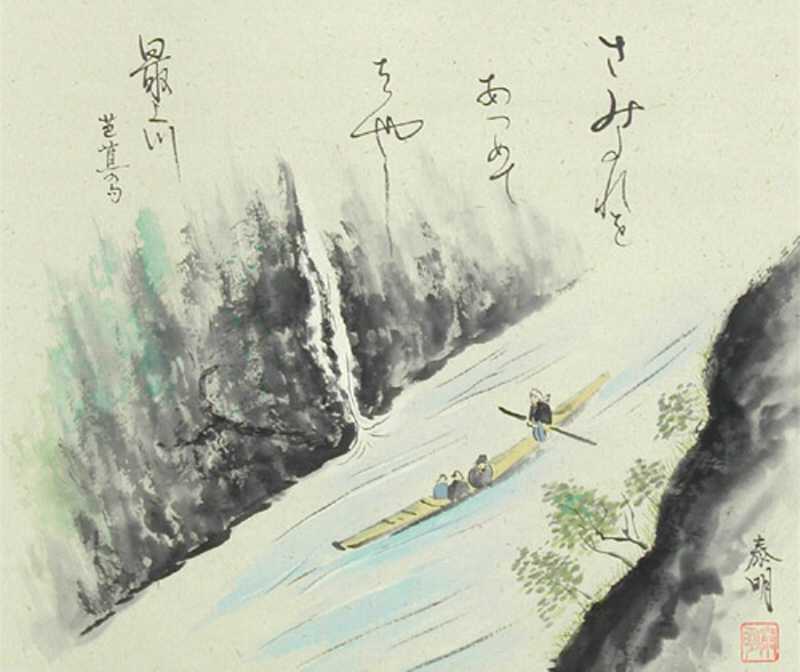 さみたれを
あつめて
はやし
最上川
芭蕉の句
泰明